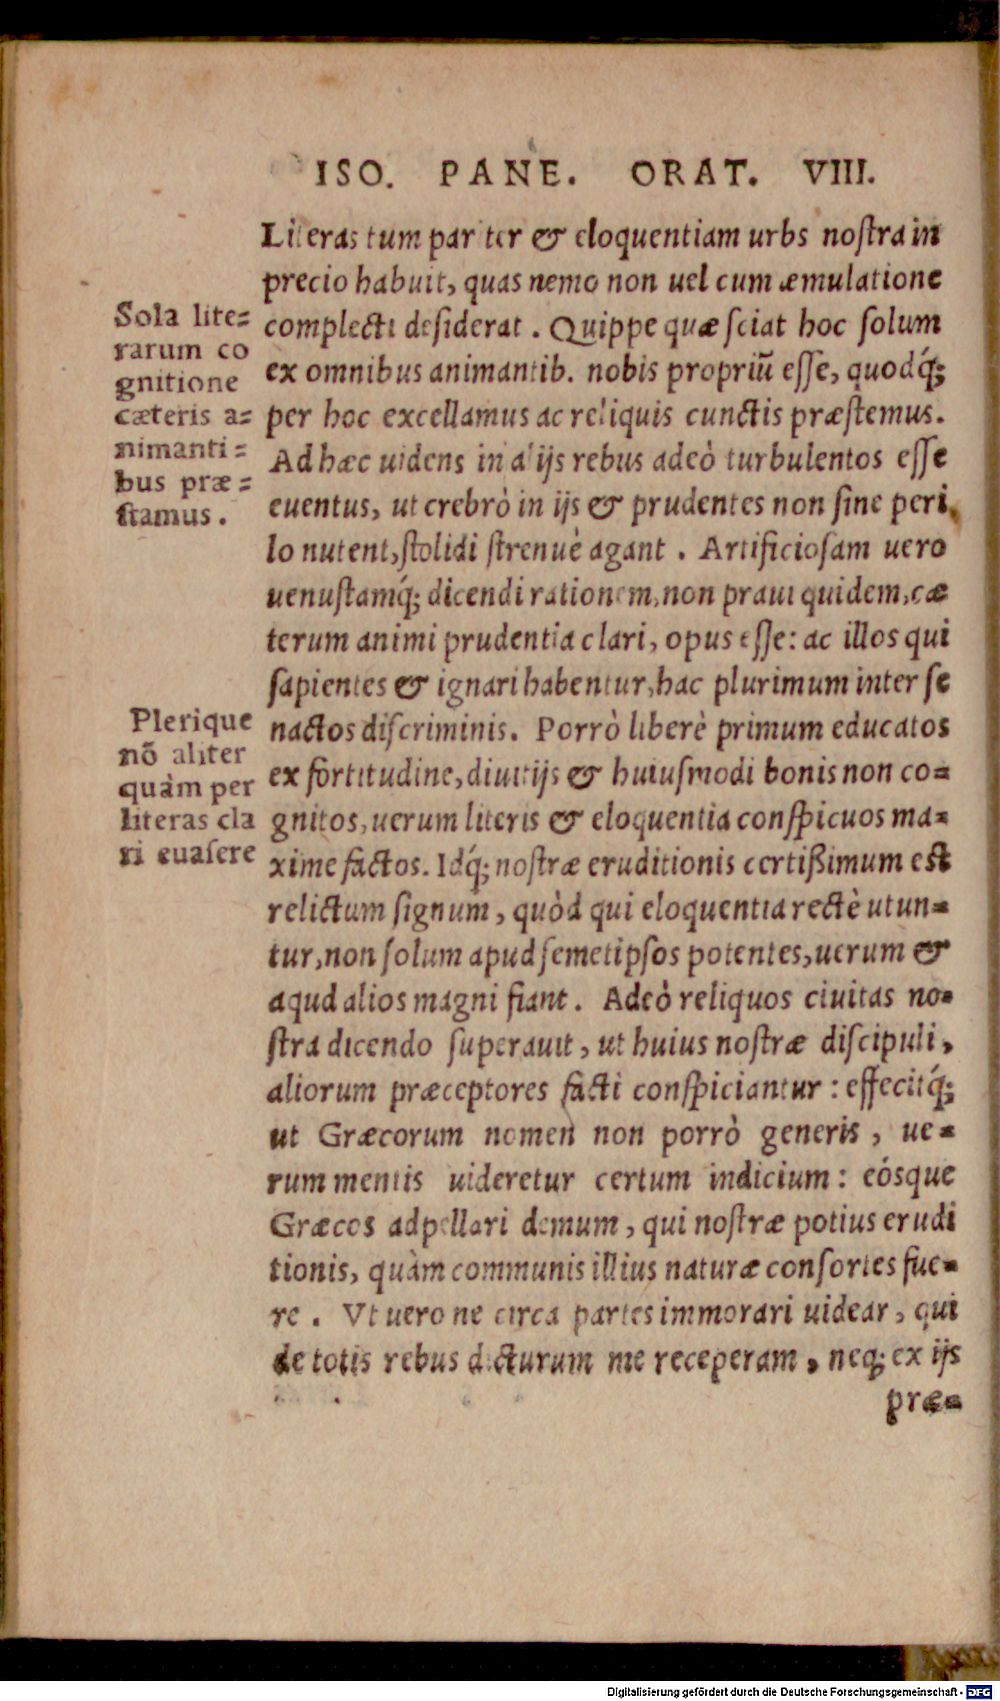 ISO. PANE. ORAT. VIII.
Literas tum pariter & eloquentiam urbs nostra in
precio habuit, quas nemo non uel cum æmulatione
complecti desiderat. Quippe quæ sciat hoc solum
ex omnibus animantib. nobis propriũ esse, quodq́;
per hoc excellamus ac reliquis cunctis præstemus.
Ad hæc uidens in alijs rebus adeò turbulentos esse
euentus, ut crebrò in ijs & prudentes non sine peri
lo nutent, stolidi strenuè agant. Artificiosam uero
uenustamq́; dicendi rationem, non praui quidem, cæ
terum animi prudentia clari, opus esse: ac illos qui
sapientes & ignari habentur, hac plurimum inter se
nactos discriminis. Porrò liberè primum educatos
ex fortitudine, diuitijs & huiusmodi bonis non co-
gnitos, uerum literis & eloquentia conspicuos ma-
xime factos. Idq́; nostræ eruditionis certißimum est
relictum signum, quòd qui eloquentia rectè utun-
tur, non solum apud semetipsos potentes, uerum &
aqud alios magni fiant. Adeò reliquos ciuitas no-
stra dicendo superauit, ut huius nostræ discipuli,
aliorum præceptores facti conspiciantur: effecitq́;
ut Græcorum nomen non porrò generis, ue-
rum mentis uideretur certum indicium: eósque
Græcos adpellari demum, qui nostræ potius erudi
tionis, quàm communis illius naturæ consortes fue-
re. Vt uero ne circa partes immorari uidear, qui
de totis rebus dicturum me receperam, neq; ex ijs
præ-
Sola lite-
rarum co
gnitione
cæteris a-
nimanti-
bus præ-
stamus.
Plerique
nõ aliter
quàm per
literas cla
ri euasere
Digitalisierung gefördert durch die Deutsche Forschungsgemeinschaft - DFG